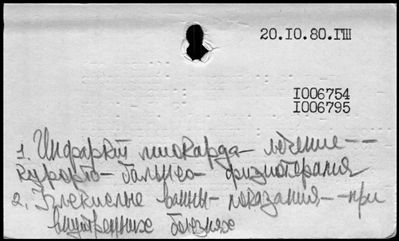 20.IO.80.ГШ
I006754
I006795
1. Инфаркт миокарда - лечение --
курорто- бальнео- физиотерапия
2. Углекислые ванны - показания - при
внутренних болезнях